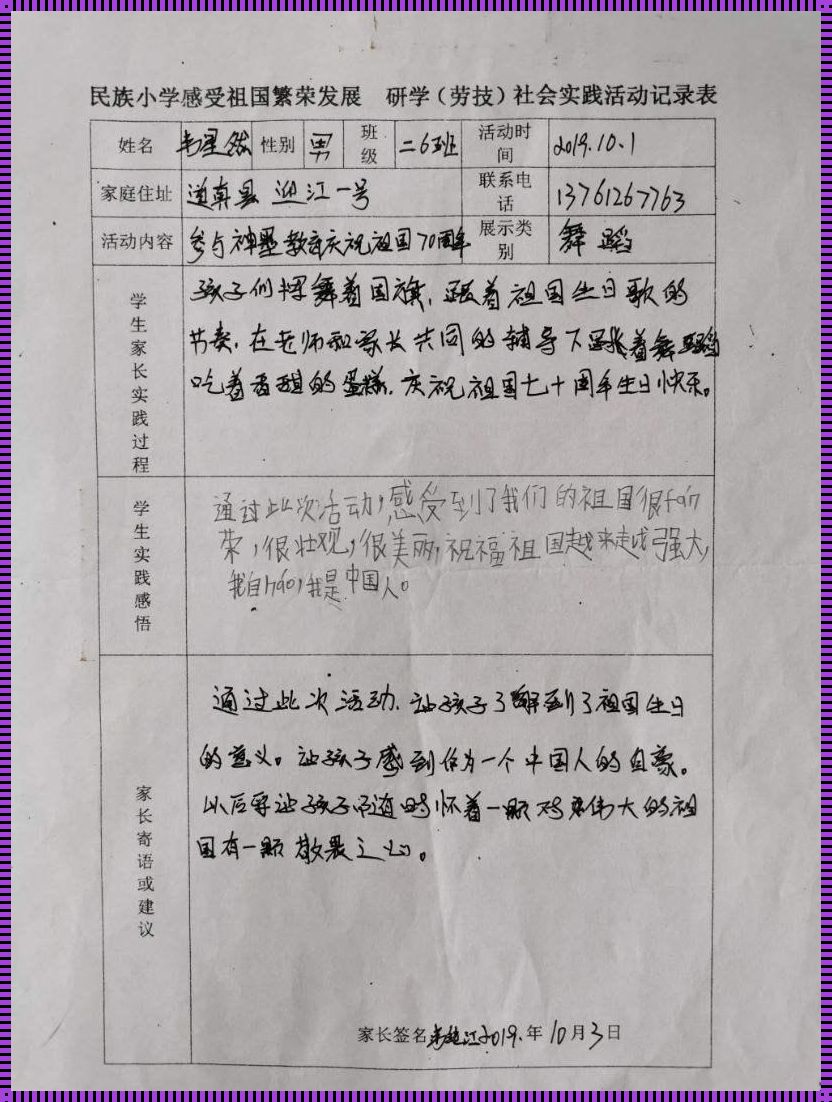 民族小学感受祖国繁荣发展 研学（劳技）社会实践活动记录表
姓名 韦星 性别 男 班级 二6班 活动时间 2019.10.1
家庭住址 道真县 迎江一号 联系电话 13761267763
活动内容 参与神墨教育庆祝祖国70周年 展示类别 舞蹈
学生家长实践过程
孩子们挥舞着国旗，跟着祖国生日歌的
节奏，在老师和家长共同的辅导下跳着舞蹈
吃着香甜的蛋糕，庆祝祖国七十周年生日快乐。
学生实践感悟
通过此次活动，感受到了我们的祖国很fán
荣，很壮观，很美丽，祝福祖国越来越强大，
我自háo，我是中国人。
家长寄语或建议
通过此次活动，让孩子了解到了祖国生日
的意义。让孩子感到作为一个中国人的自豪。
以后要让孩子随时怀着一颗对伟大的祖
国有一颗敬畏之心。
家长签名 2019.年10月3日